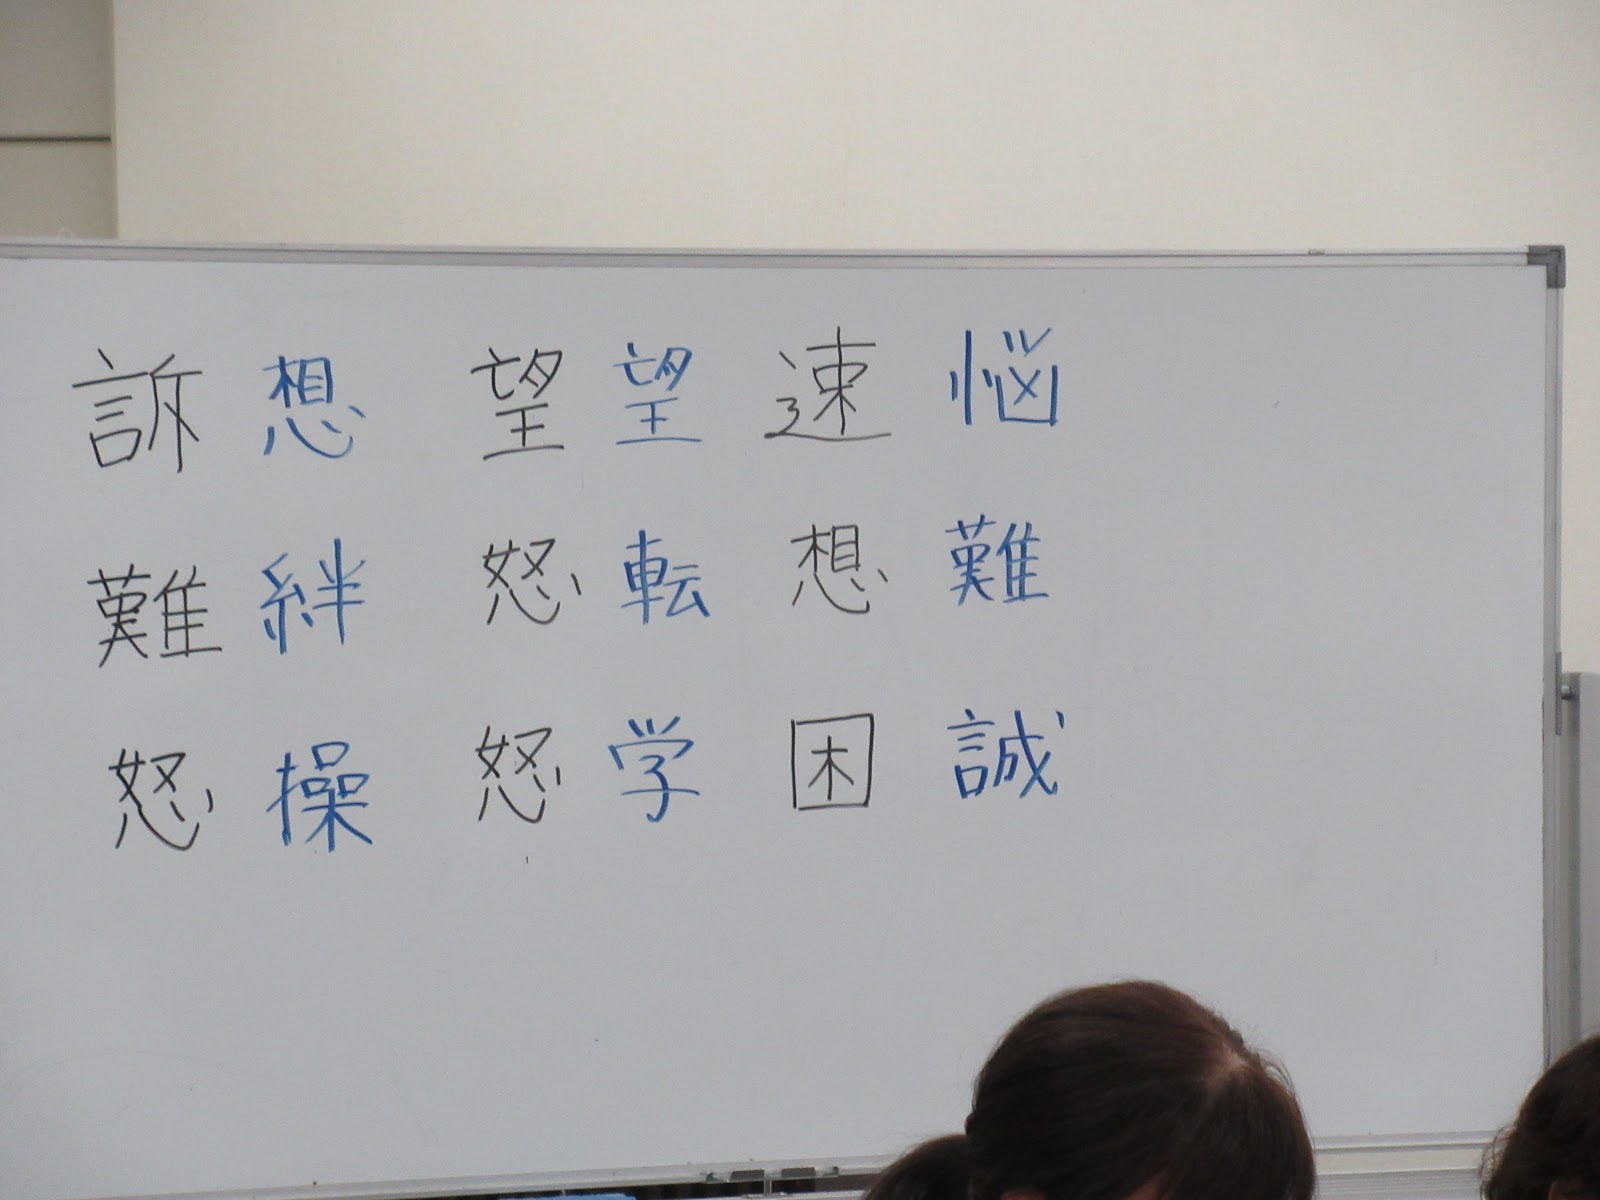 訴 想 望 望 速 悩
難 絆 怒 転 想 難
怒 操 怒 学 困 誠